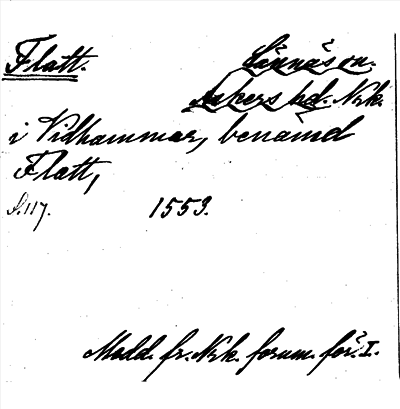 Flatt. Lännäs sn.
Askers hd. Nrk.
i Vidhammar, benämd
Flatt,
S. 117. 1559.
Medd. fr. Nrk. fornm.för. I.